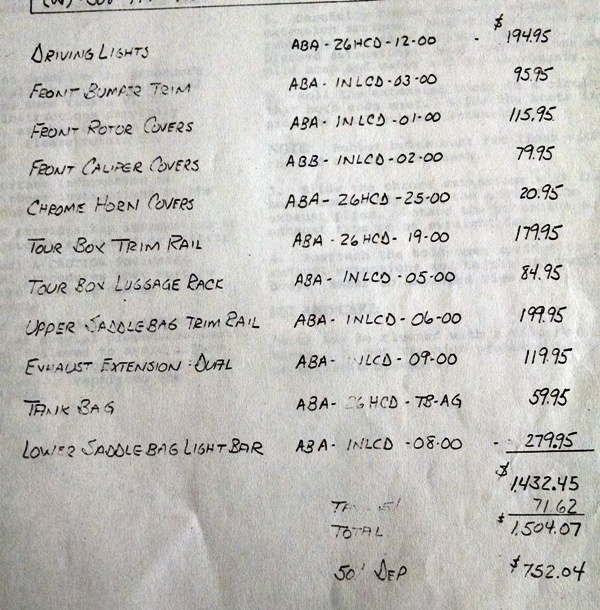 DRIVING LIGHTS ABA-26HCD-12-00 - $194.95
FRONT BUMPER TRIM ABA-INLCD-03-00 95.95
FRONT ROTOR COVERS ABA-INLCD-01-00 115.95
FRONT CALIPER COVERS ABB-INLCD-02-00 79.95
CHROME HORN COVERS ABA-26HCD-25-00 20.95
TOUR BOX TRIM RAIL ABA-26HCD-19-00 179.95
TOUR BOX LUGGAGE RACK ABA-INLCD-05-00 84.95
UPPER SADDLEBAG TRIM RAIL ABA-INLCD-06-00 199.95
EXHAUST EXTENSION-DUAL ABA-INLCD-09-00 119.95
TANK BAG ABA-26HCD-TB-AG 59.95
LOWER SADDLEBAG LIGHT BAR ABA-INLCD-08-00 - 279.95
$1,432.45
71.62
TOTAL $1,504.07
DEP $752.04